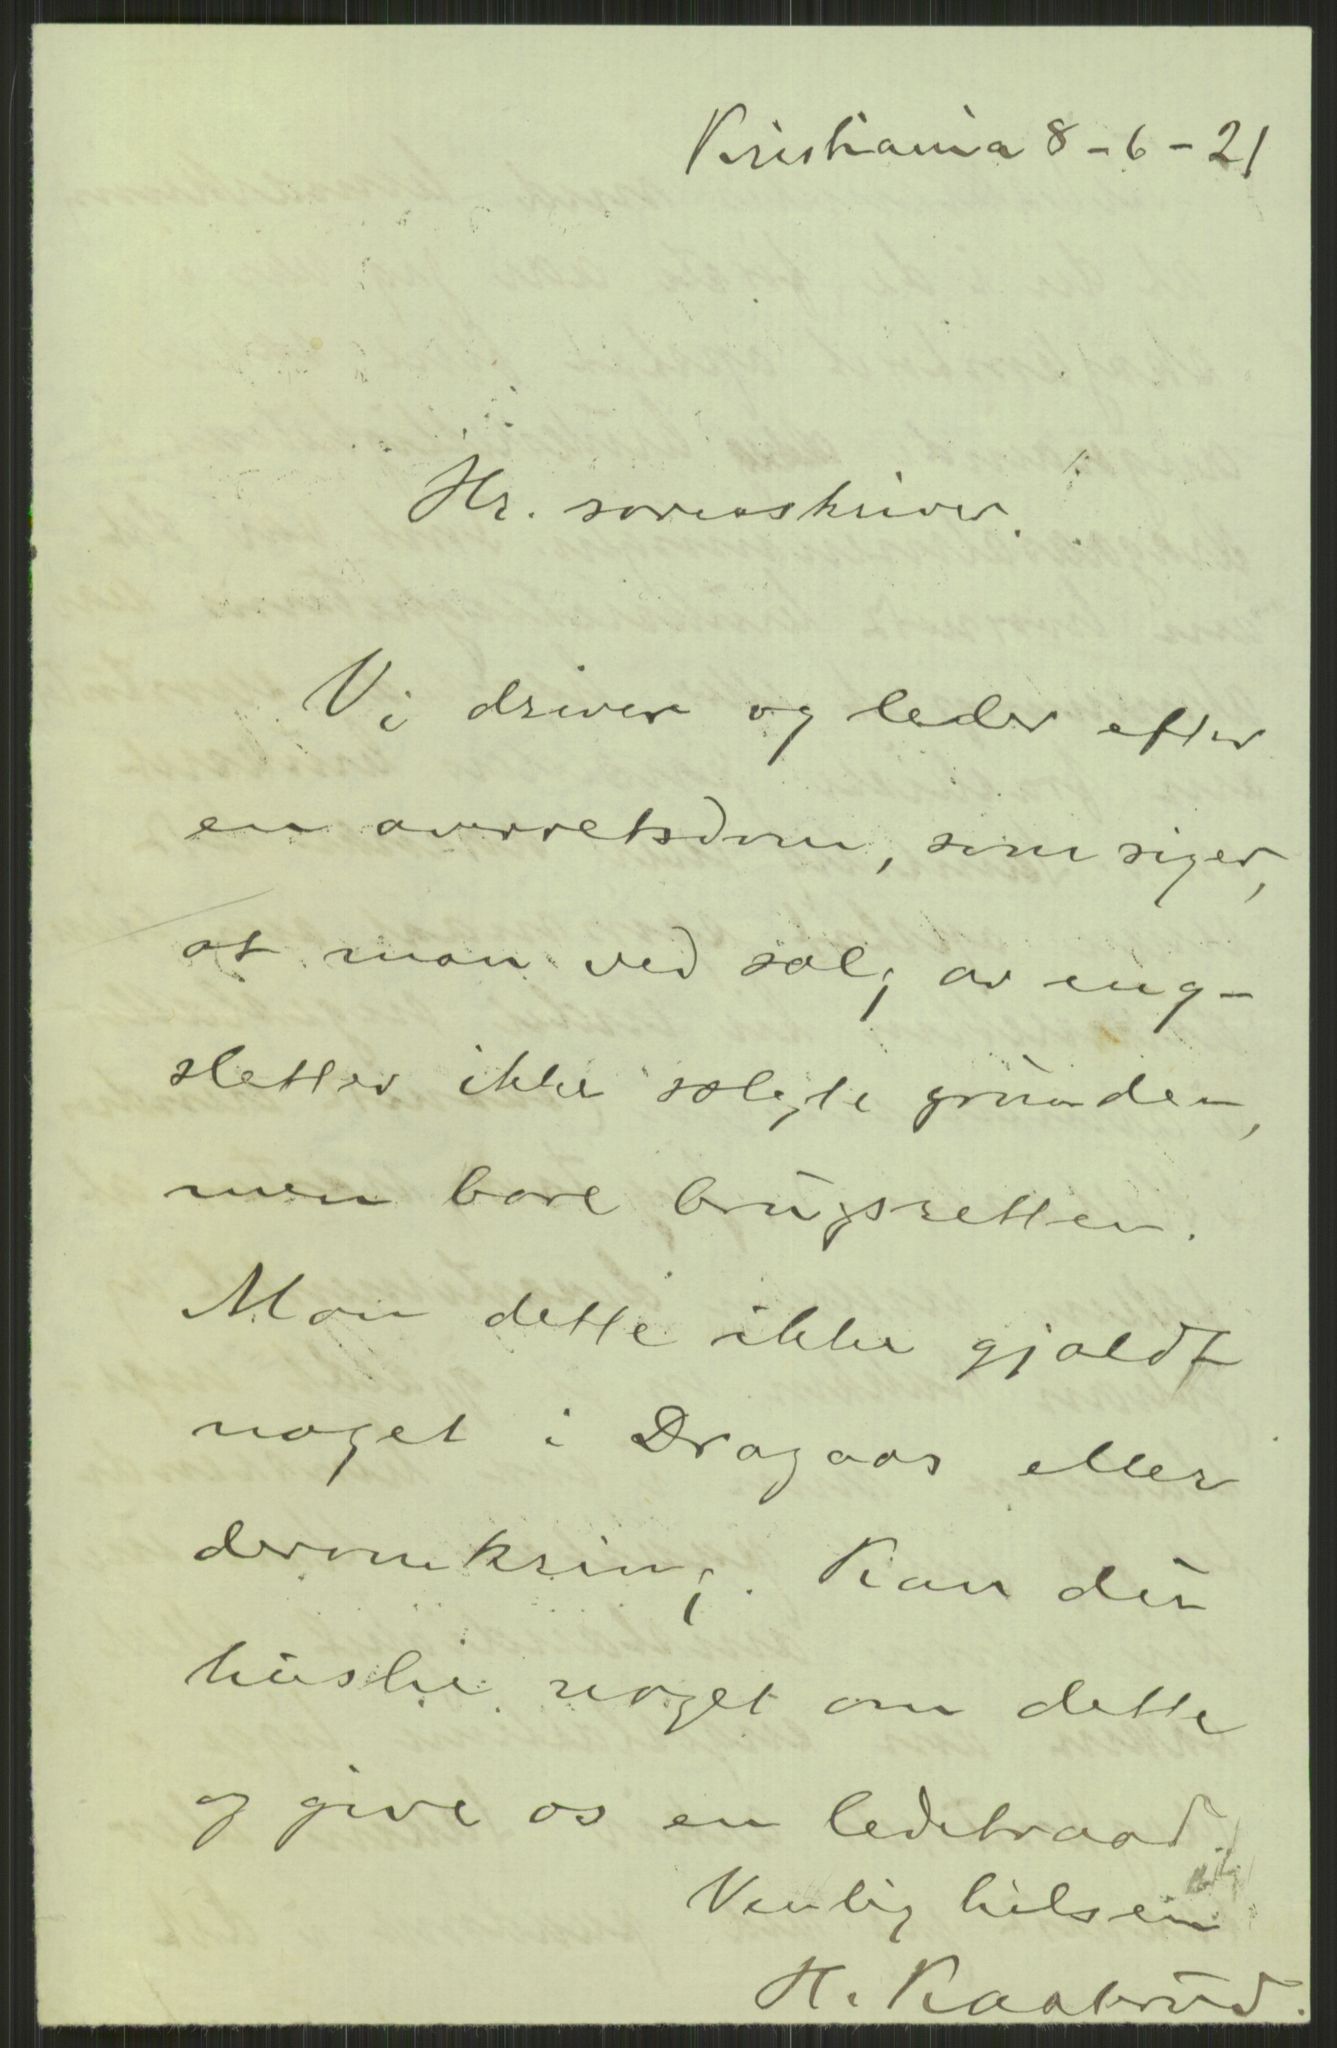 Kristiania 8-6-21
Hr. sorenskriver.
Vi driver og leder efter
en overretsdom, som siger,
at man ved salg av eng-
sletter ikke solgte grunden,
men bare brugsretten.
Mon dette ikke gjaldt
noget i Dragaas eller
deromkring. Kan du
huske noget om dette
og give os en ledetraad.
Venlig hilsen
H. Kaabrud.